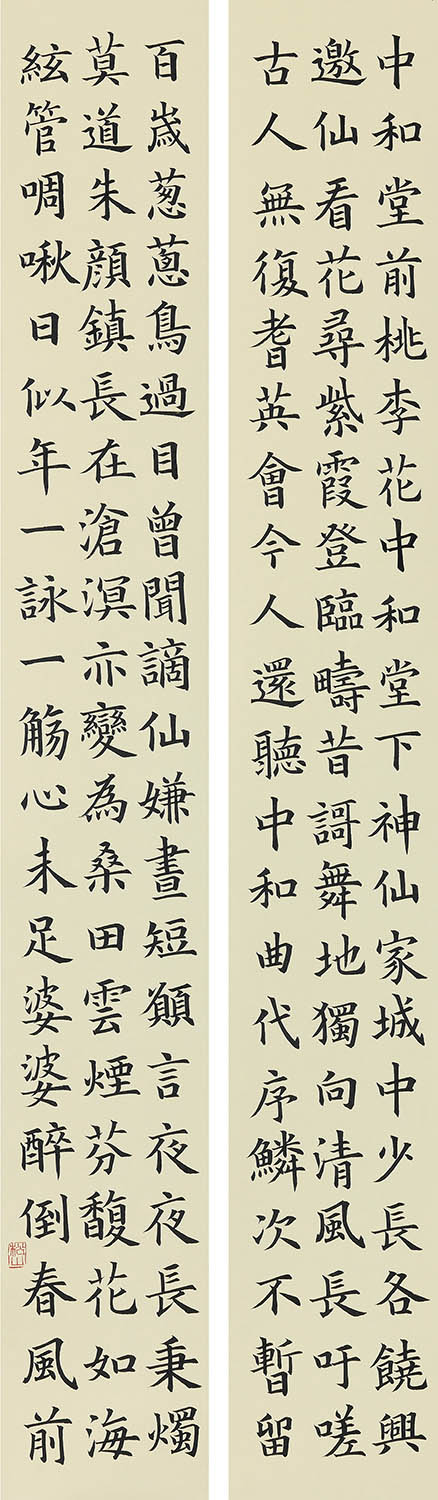 中和堂前桃李花中和堂下神仙家城中少長各饒興
邀仙看花尋紫霞登臨疇昔謌舞地獨向清風長吁嗟
古人無復耆英會今人還聽中和曲代序鱗次不暫留
百歲葱蔥鳥過目曾聞謫仙嫌晝短願言夜夜長秉燭
莫道朱顔鎮長在滄溟亦變為桑田雲煙芬馥花如海
絃管啁啾日似年一詠一觴心未足婆娑醉倒春風前